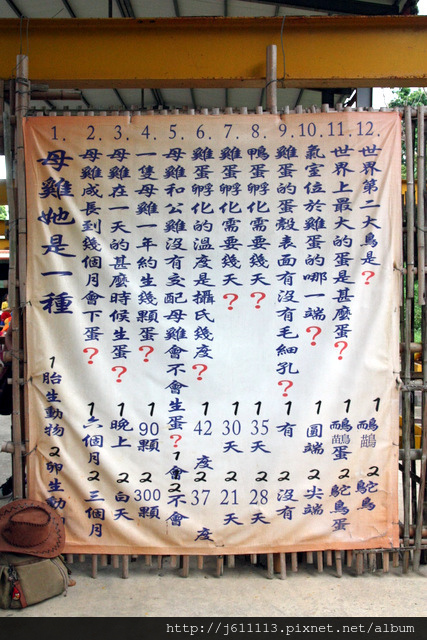 1. 母雞她是一種
1胎生動物 2卵生動
2. 母雞成長到幾個月會下蛋?
1六個月 2三個月
3. 母雞在一天的甚麼時候生蛋?
1晚上 2白天
4. 一隻母雞一年約生幾顆蛋?
1 90顆 2 300顆
5. 母雞和公雞沒有支配母雞會不會生蛋?
1會 2不會
6. 雞蛋孵化的溫度是攝氏幾度?
1 42度 2 37度
7. 雞蛋孵化需要幾天?
1 30天 2 21天
8. 鴨蛋孵化需要幾天?
1 35天 2 28天
9. 雞蛋的蛋殼表面有沒有毛細孔?
1有 2沒有
10. 氣室位於雞蛋的哪一端?
1圓端 2尖端
11. 世界上最大的蛋是甚麼蛋?
1鴯鶓蛋 2鴕鳥蛋
12. 世界第二大鳥是?
1鴯鶓 2鴕鳥
http://j611113.pixnet.net/album